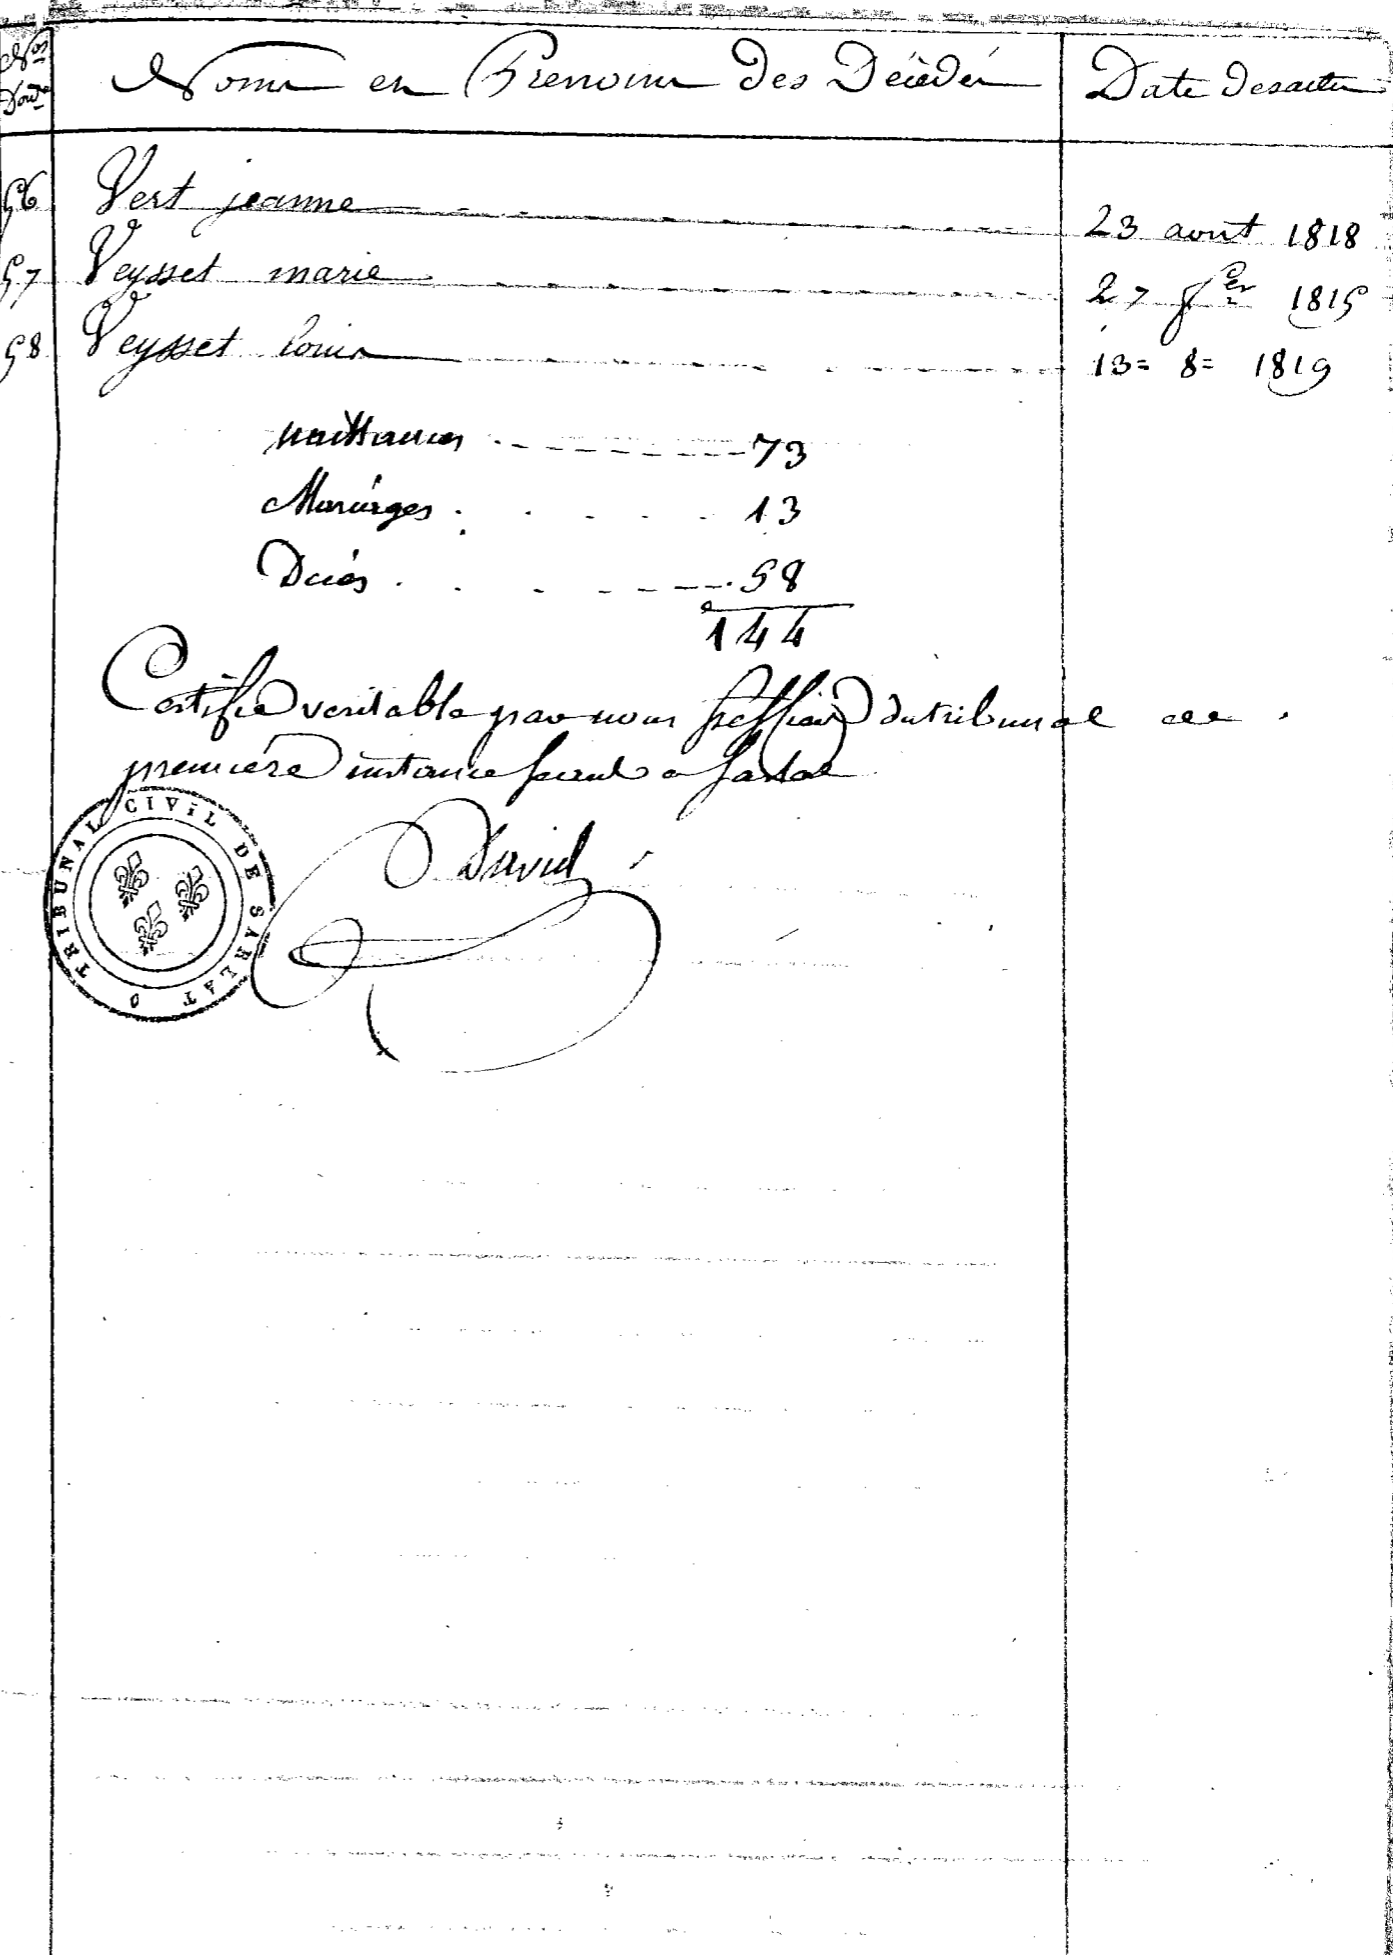 Nos Noms et Prenoms des Décédés Date des actes
d'ordre
56 Vert jeanne 23 aout 1818
57 Veysset marie 27 fer 1815
58 Veysset louis 13 = 8 = 1819
naissances 73
Mariages 13
Décés 58
144
Certifié veritable par nous greffier du tribunal de
premiére instance séant a Sarlat
David
TRIBUNAL CIVIL DE SARLAT